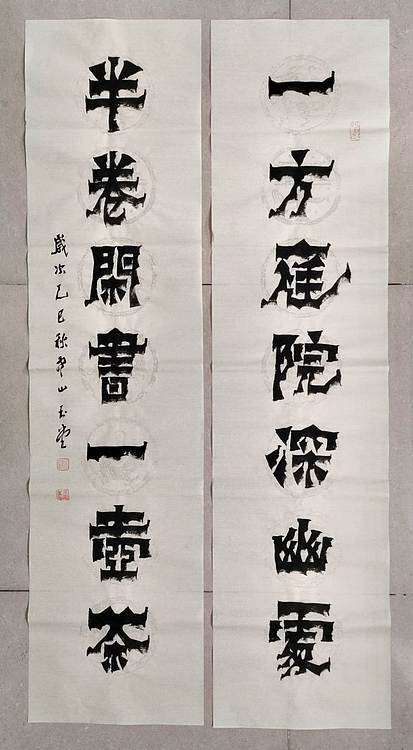 一方庭院深幽處
半卷閑書一壺茶
歲次乙巳秋